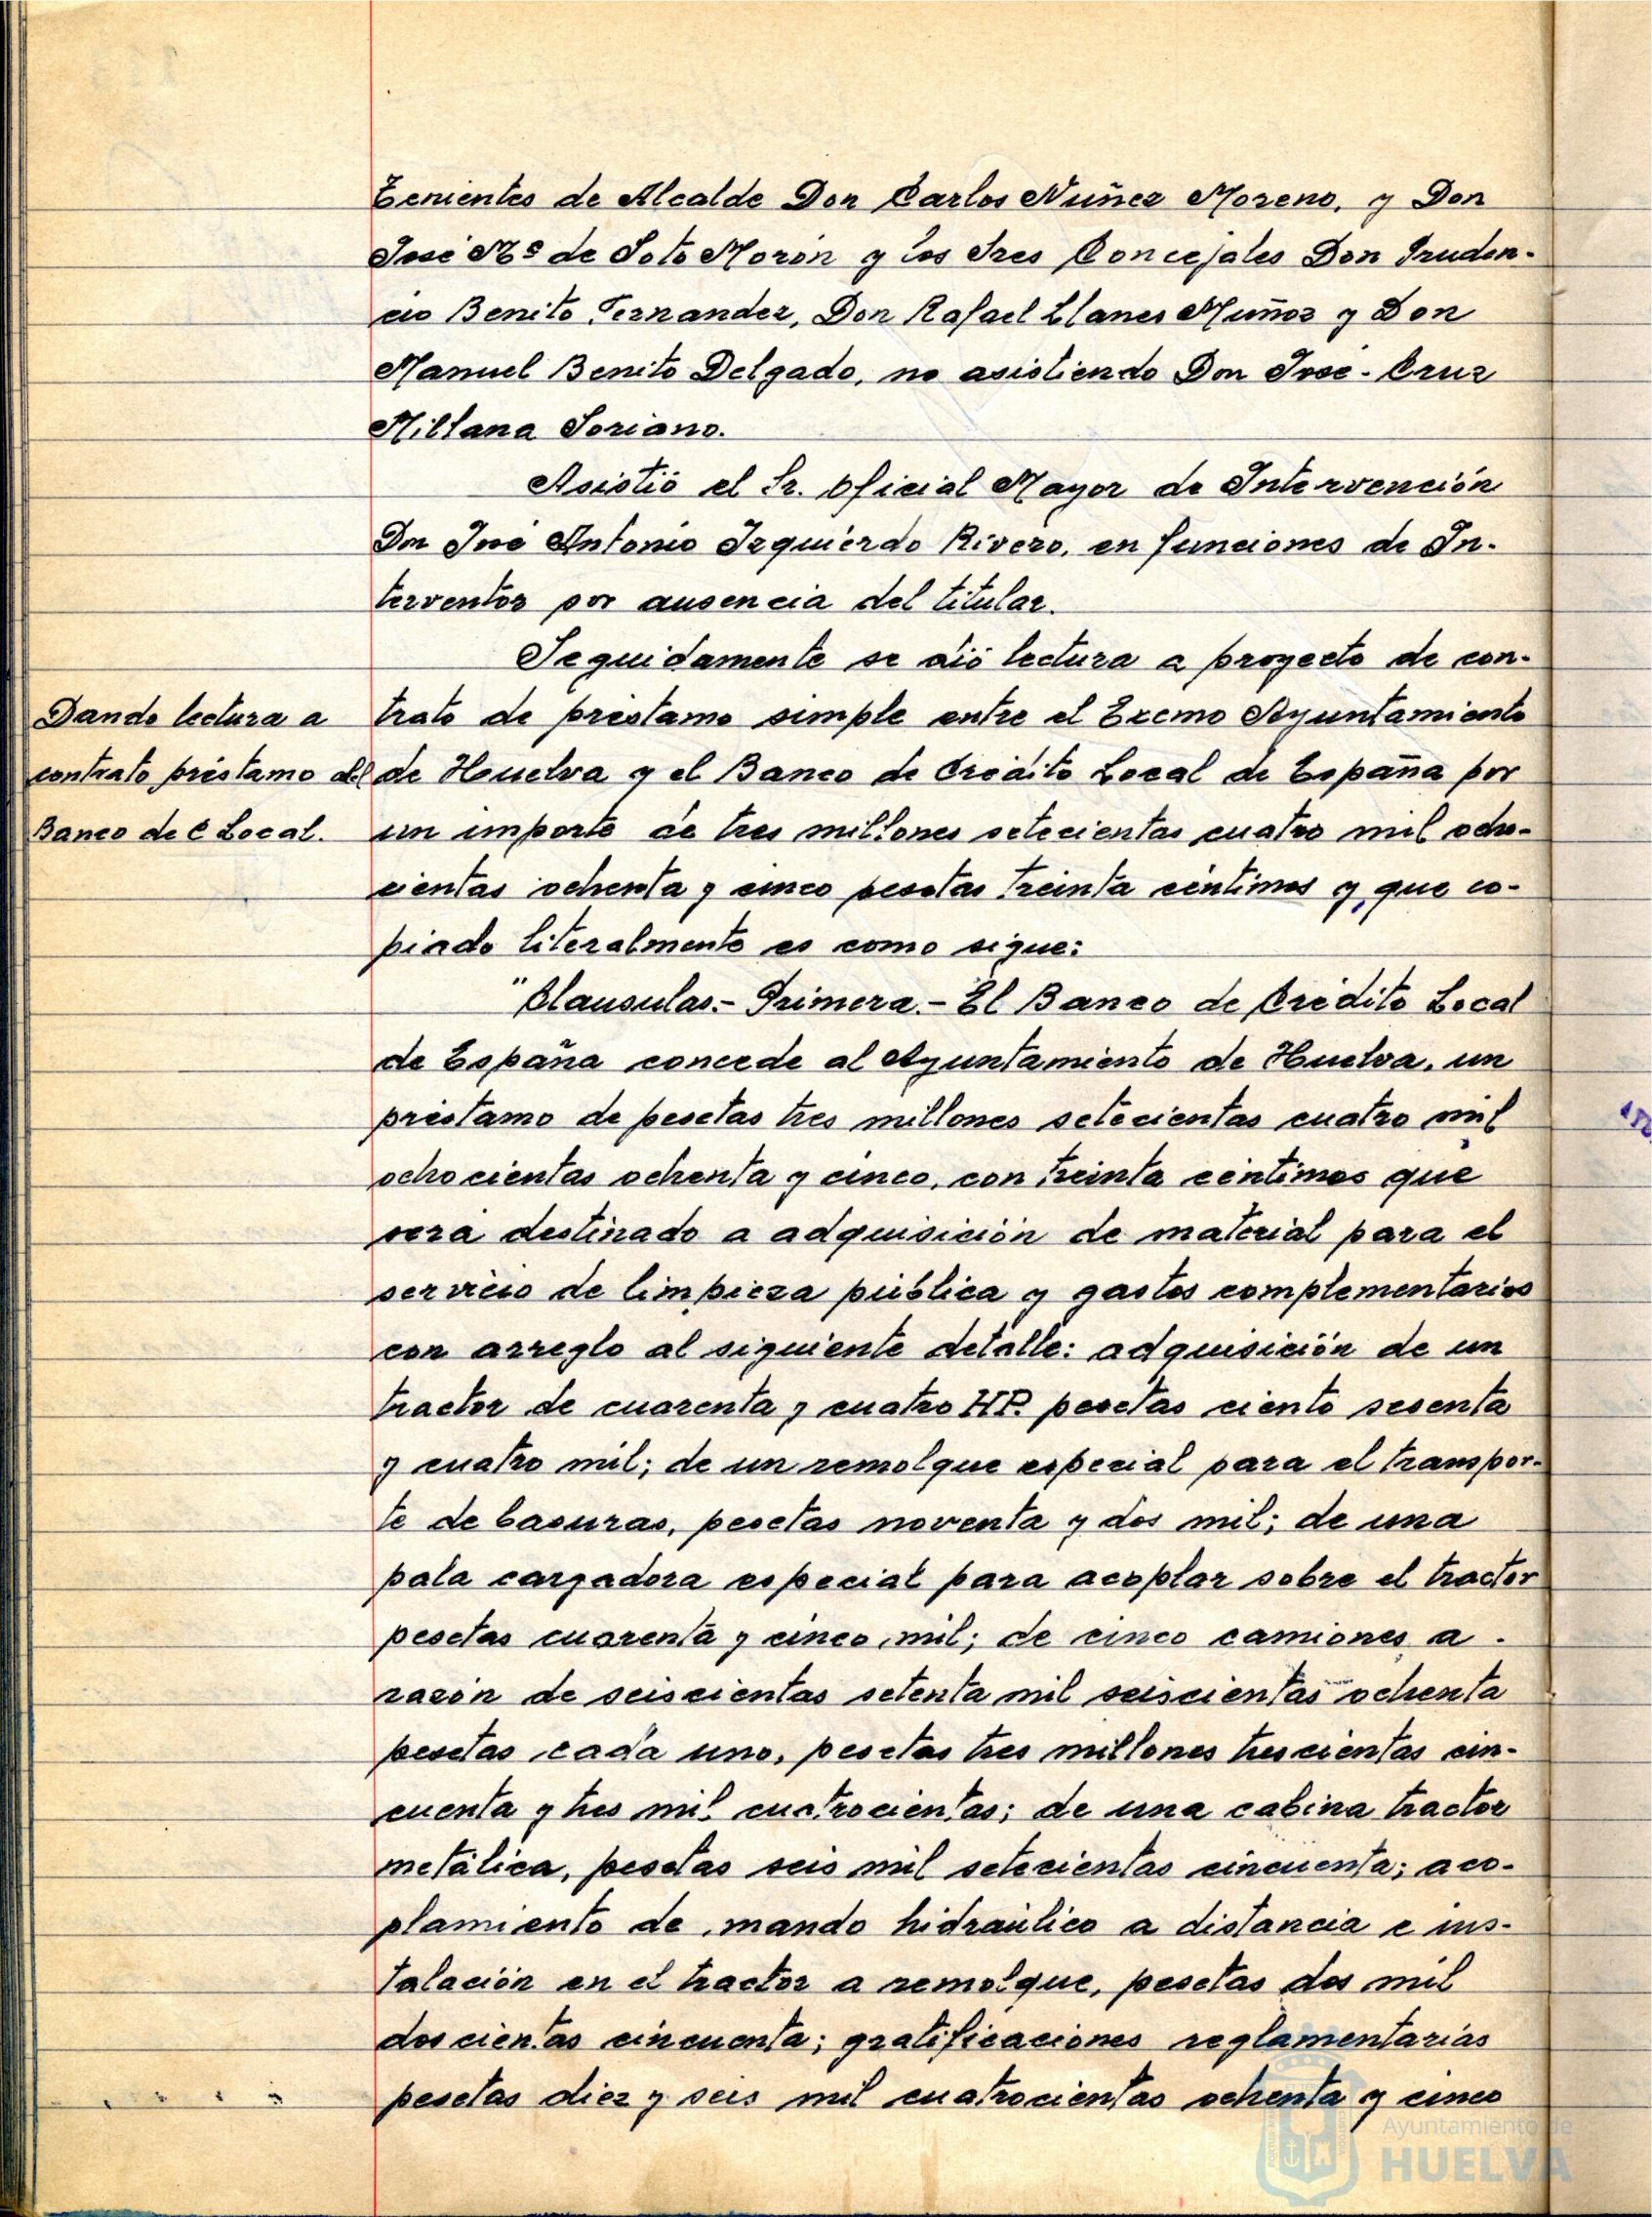 Tenientes de Alcalde Don Carlos Nuñez Moreno, y Don
José Mª de Soto Morón y los Sres Concejales Don Pruden-
cio Benito Fernandez, Don Rafael Llanes Muñoz y Don
Manuel Benito Delgado, no asistiendo Don José-Cruz
Millana Soriano.
Asistió el Sr. Oficial Mayor de Intervención
Don José Antonio Izquierdo Rivero, en funciones de In-
terventor por ausencia del titular.
Seguidamente se dió lectura a proyecto de con-
Dando lectura a
contrato préstamo del
Banco de C Local.
trato de prestamo simple entre el Excmo Ayuntamiento
de Huelva y el Banco de Crédito Local de España por
un importe de tres millones setecientas cuatro mil ocho-
cientas ochenta y cinco pesetas treinta céntimos y que co-
piado literalmente es como sigue:
"Clausulas.- Primera.- El Banco de Crédito Local
de España concede al Ayuntamiento de Huelva, un
préstamo de pesetas tres millones setecientas cuatro mil
ochocientas ochenta y cinco, con treinta céntimos que
sera destinado a adquisición de material para el
servicio de limpieza pública y gastos complementarios
con arreglo al siguiente detalle: adquisición de un
tractor de cuarenta y cuatro HP. pesetas ciento sesenta
y cuatro mil; de un remolque especial para el transpor-
te de basuras, pesetas noventa y dos mil; de una
pala cargadora especial para acoplar sobre el tractor
pesetas cuarenta y cinco mil; de cinco camiones a
razón de seiscientas setenta mil seiscientas ochenta
pesetas cada uno, pesetas tres millones trescientas cin-
cuenta y tres mil cuatrocientas; de una cabina tractor
metálica, pesetas seis mil setecientas cincuenta; aco-
plamiento de mando hidraúlico a distancia e ins-
talación en el tractor a remolque, pesetas dos mil
doscientas cincuenta; gratificaciones reglamentarias
pesetas diez y seis mil cuatrocientas ochenta y cinco
Ayuntamiento de
HUELVA